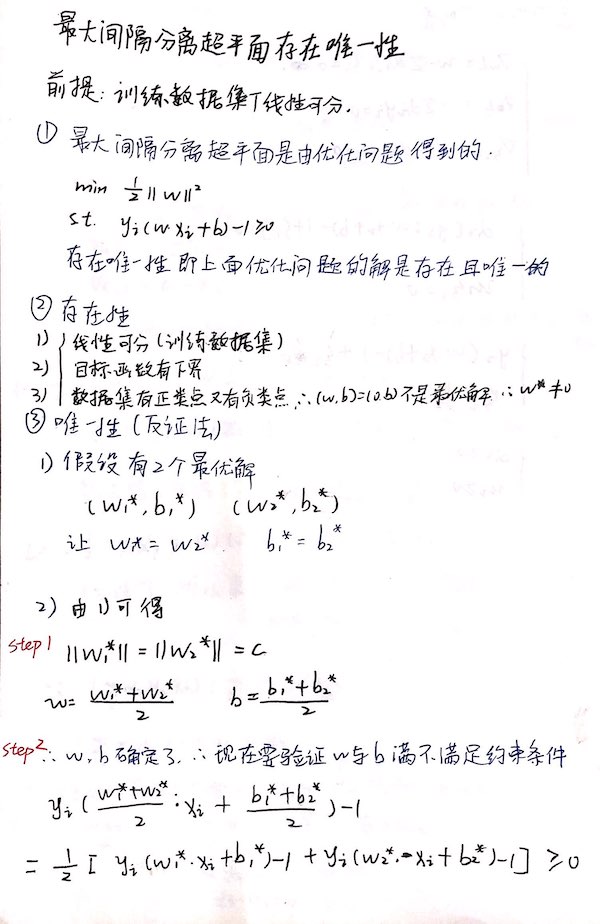 最大间隔分离超平面存在唯一性
前提: 训练数据集T线性可分.
① 最大间隔分离超平面是由优化问题得到的.
min ½||w||²
s.t. yᵢ(w·xᵢ+b)-1≥0
存在唯一性即上面优化问题的解是存在且唯一的
② 存在性
1) 线性可分(训练数据集)
2) 目标函数有下界
3) 数据集有正类点又有负类点∴(w,b)=(0,b)不是最优解∴w*≠0
③ 唯一性(反证法)
1) 假设有2个最优解
(w₁*,b₁*) (w₂*,b₂*)
让 w₁*=w₂* b₁*=b₂*
2) 由1)可得
step1 ||w₁*||=||w₂*||=c
w=(w₁*+w₂*)/2 b=(b₁*+b₂*)/2
step2 ∵w,b确定了,∴现在要验证w与b满不满足约束条件
yᵢ((w₁*+w₂*)/2·xᵢ+(b₁*+b₂*)/2)-1
=½[yᵢ(w₁*·xᵢ+b₁*)-1+yᵢ(w₂*·xᵢ+b₂*)-1]≥0